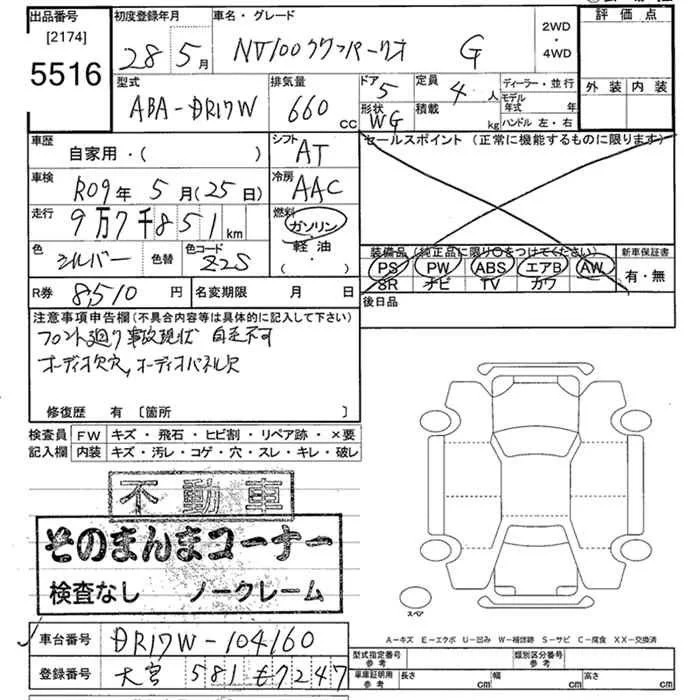 出品番号 [2174] 5516
初度登録年月 28 5月
車名・グレード NV100クリッパーリオ G
2WD・4WD
評価点
外装 内装
型式 ABA-DR17W
排気量 660 cc
ドア 5
形状 WG
定員 4人
積載 kg
ディーラー・並行
モデル年式 年
ハンドル 左・右
車歴 自家用・( )
シフト AT
セールスポイント (正常に機能するものに限ります)
車検 R09年 5月(25日)
冷房 AAC
走行 9万7千851km
燃料 ガソリン・軽油・( )
色 シルバー 色替 色コード Z2S
装備品(純正品に限り○をつけてください)
PS PW ABS エアB AW
SR ナビ TV カワ
新車保証書 有・無
R券 8,510円 名変期限 月 日
後日品
注意事項申告欄(不具合内容等は具体的に記入して下さい)
フロント廻り事故現状 自走不可
オーディオ欠穴, オーディオパネル欠
修復歴 有 [箇所 ]
検査員記入欄
FW キズ・飛石・ヒビ割・リペア跡・×要
内装 キズ・汚レ・コゲ・穴・スレ・キレ・破レ
不動車
そのまんまコーナー
検査なし ノークレーム
スペア
A-キズ E-エクボ U-凹み W-補修跡 S-サビ C-腐食 XX-交換済
車台番号 DR17W-104160
登録番号 大宮 581 も7247
型式指定番号 参考 類別区分番号 参考
車庫証明用 参考 長さ cm 幅 cm 高さ cm